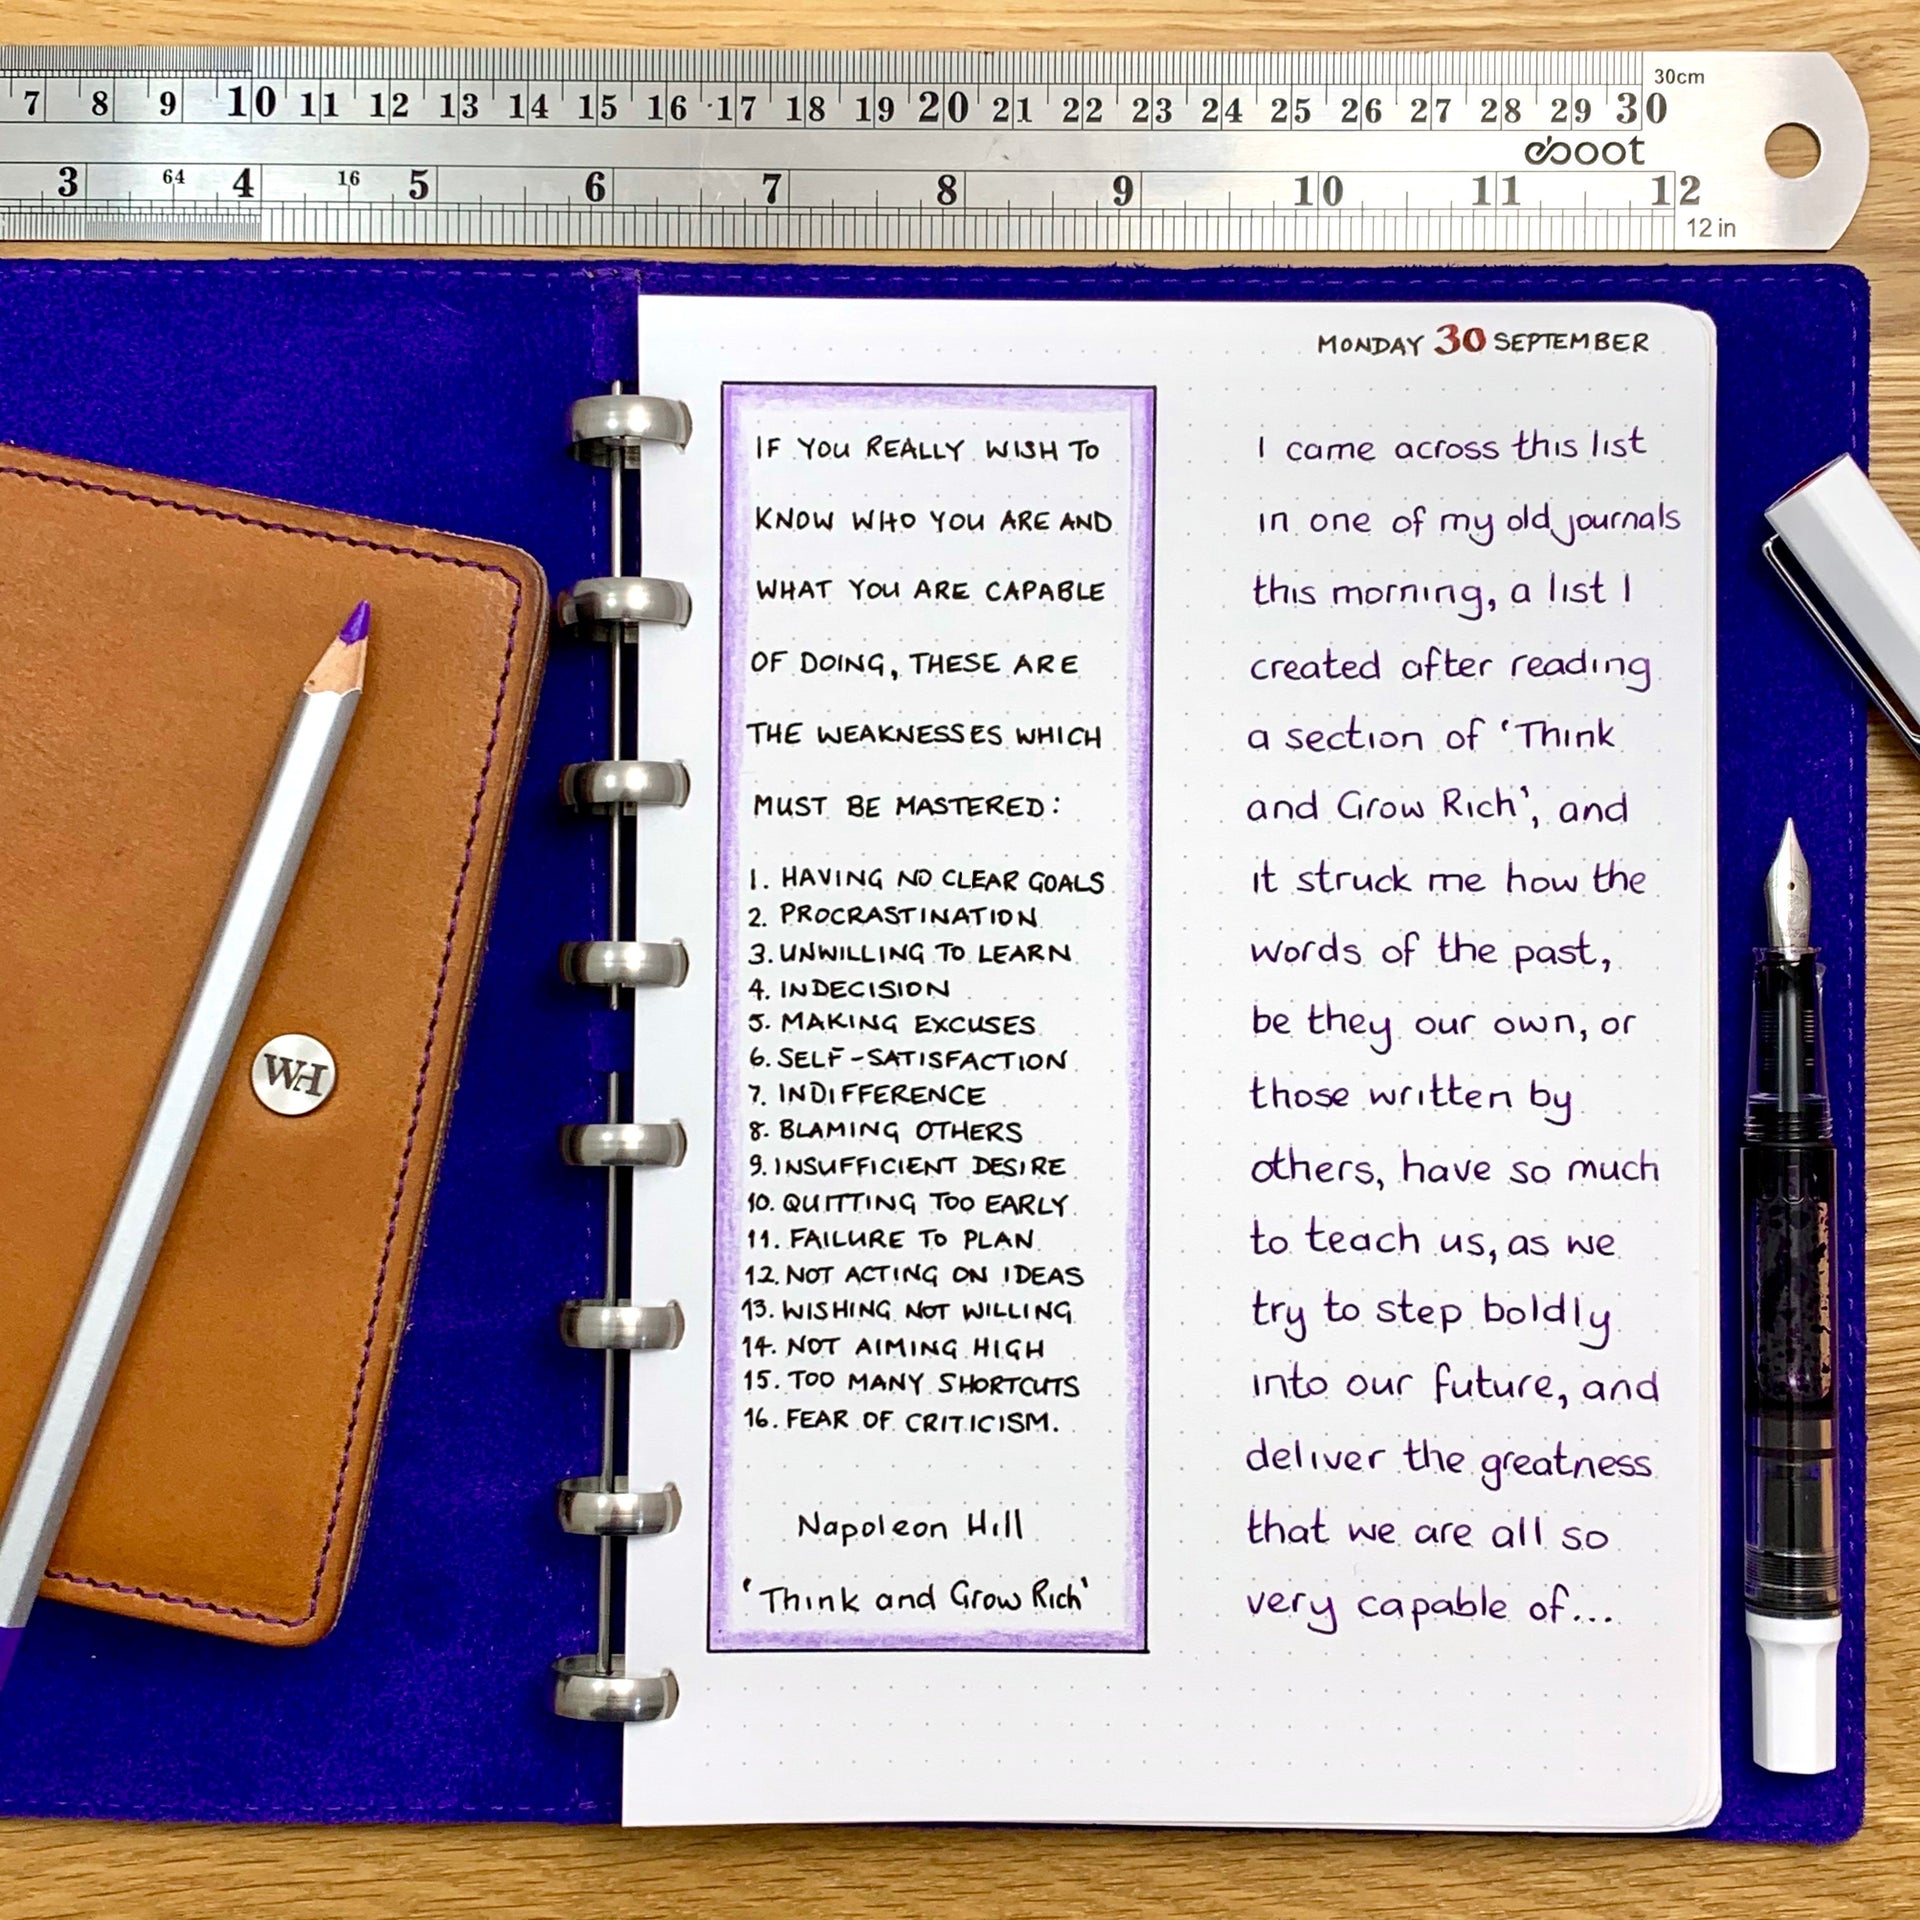 30cm
7 8 9 10 11 12 13 14 15 16 17 18 19 20 21 22 23 24 25 26 27 28 29 30
eboot
3 64 4 16 5 6 7 8 9 10 11 12
12 in
MONDAY 30 SEPTEMBER
IF YOU REALLY WISH TO
KNOW WHO YOU ARE AND
WHAT YOU ARE CAPABLE
OF DOING, THESE ARE
THE WEAKNESSES WHICH
MUST BE MASTERED:
1. HAVING NO CLEAR GOALS
2. PROCRASTINATION
3. UNWILLING TO LEARN
4. INDECISION
5. MAKING EXCUSES
6. SELF-SATISFACTION
7. INDIFFERENCE
8. BLAMING OTHERS
9. INSUFFICIENT DESIRE
10. QUITTING TOO EARLY
11. FAILURE TO PLAN
12. NOT ACTING ON IDEAS
13. WISHING NOT WILLING
14. NOT AIMING HIGH
15. TOO MANY SHORTCUTS
16. FEAR OF CRITICISM.
Napoleon Hill
'Think and Grow Rich'
I came across this list
in one of my old journals
this morning, a list I
created after reading
a section of 'Think
and Grow Rich', and
it struck me how the
words of the past,
be they our own, or
those written by
others, have so much
to teach us, as we
try to step boldly
into our future, and
deliver the greatness
that we are all so
very capable of...
WH